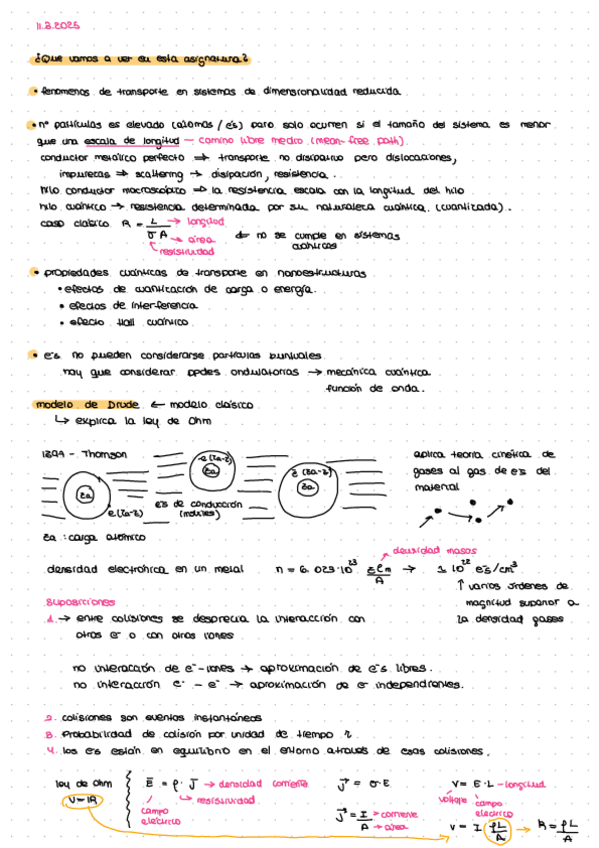 11.2.2025
¿Que vamos a ver en esta asignatura?
• fenomenos de transporte en sistemas de dimensionalidad reducida
• nº partículas es elevado (atomos / e⁻s) pero solo ocurren si el tamaño del sistema es menor
que una escala de longitud — camino libre medio (mean-free path)
conductor metálico perfecto ⇒ transporte no disipativo pero dislocaciones,
impurezas ⇒ scattering → disipación, resistencia.
hilo conductor macroscópico ⇒ la resistencia escala con la longitud del hilo
hilo cuántico → resistencia determinada por su naturaleza cuántica. (cuantizada).
caso clásico R = L / σ A → longitud
→ área
resistividad
no se cumple en sistemas
cuánticos
• propiedades cuánticas de transporte en nanoestructuras
• efectos de cuantización de carga o energía.
• efectos de interferencia
• efecto Hall cuántico
• e⁻s no pueden considerarse partículas puntuales
hay que considerar ppdes ondulatorias → mecánica cuántica
función de onda.
modelo de Drude ← modelo clásico
↳ explica la ley de Ohm
1897 - Thomson
-e (Za-Z)
Za
Z (Za-Z)
Za
Za
e(Za-Z)
e⁻s de conducción
(móviles)
aplica teoría cinética de
gases al gas de e⁻s del
material
Za : carga atómico
densidad electrónica en un metal n = 6.023·10²³ Z ρm / A → 1 10²² e⁻s/cm³
densidad masas
↑ varios órdenes de
magnitud superior a
la densidad gases
Suposiciones
1. → entre colisiones se desprecia la interacción con
otros e⁻ o con otros iones
no interacción de e⁻-iones → aproximación de e⁻s libres.
no interacción e⁻ - e⁻ → aproximación de e⁻ independientes.
2. colisiones son eventos instantáneos
3. Probabilidad de colisión por unidad de tiempo
4. los e⁻s están en equilibrio en el entorno a través de esas colisiones.
ley de Ohm
V=IR
E = ρ · J → densidad corriente
↳ resistividad
campo
eléctrico
J = σ·E
J = I / A → corriente
→ área
V = E·L - longitud
voltaje campo
eléctrico
V = I ρL / A → R = ρL / A